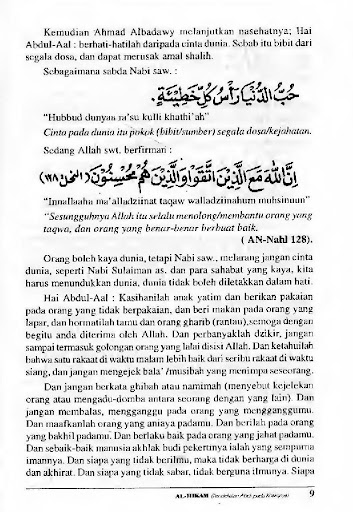 Kemudian Ahmad Albadawy melanjutkan nasehatnya; Hai
Abdul-Aal : berhati-hatilah daripada cinta dunia. Sebab itu bibit dari
segala dosa, dan dapat merusak amal shalih.
Sebagaimana sabda Nabi saw. :
حُبُّ الدُّنْيَا رَأْسُ كُلِّ خَطِيْئَةٍ.
“Hubbud dunyaa ra’su kulli khathi’ah”
Cinta pada dunia itu pokok (bibit/sumber) segala dosa/kejahatan.
Sedang Allah swt. berfirman :
اِنَّ اللهَ مَعَ الَّذِيْنَ اتَّقَوْا وَالَّذِيْنَ هُمْ مُحْسِنُوْنَ (النحل ١٢٨)
“Innallaaha ma’alladziinat taqaw walladziinahum muhsinuun”
“Sesungguhnya Allah itu selalu menolong/membantu orang yang
taqwa, dan orang yang benar-benar berbuat baik.
( AN-Nahl 128).
Orang boleh kaya dunia, tetapi Nabi saw., melarang jangan cinta
dunia, seperti Nabi Sulaiman as. dan para sahabat yang kaya, kita
harus menundukkan dunia, dunia tidak boleh diletakkan dalam hati.
Hai Abdul-Aal : Kasihanilah anak yatim dan berikan pakaian
pada orang yang tidak berpakaian, dan beri makan pada orang yang
lapar, dan hormatilah tamu dan orang gharib (rantau), semoga dengan
begitu anda diterima oleh Allah. Dan perbanyaklah dzikir, jangan
sampai termasuk golongan orang yang lalai disisi Allah. Dan ketahuilah
bahwa satu rakaat di waktu malam lebih baik dari seribu rakaat di waktu
siang, dan jangan mengejek bala’ /musibah yang menimpa seseorang.
Dan jangan berkata ghibah atau namimah (menyebut kejelekan
orang atau mengadu-domba antara seorang dengan yang lain). Dan
jangan membalas, mengganggu pada orang yang mengganggumu.
Dan maafkanlah orang yang aniaya padamu. Dan berilah pada orang
yang bakhil padamu. Dan berlaku baik pada orang yang jahat padamu.
Dan sebaik-baik manusia akhlak budi pekertinya ialah yang sempurna
imannya. Dan siapa yang tidak berilmu, maka tidak berharga di dunia
dan akhirat. Dan siapa yang tidak sabar, tidak berguna ilmunya. Siapa
AL-HIKAM 9